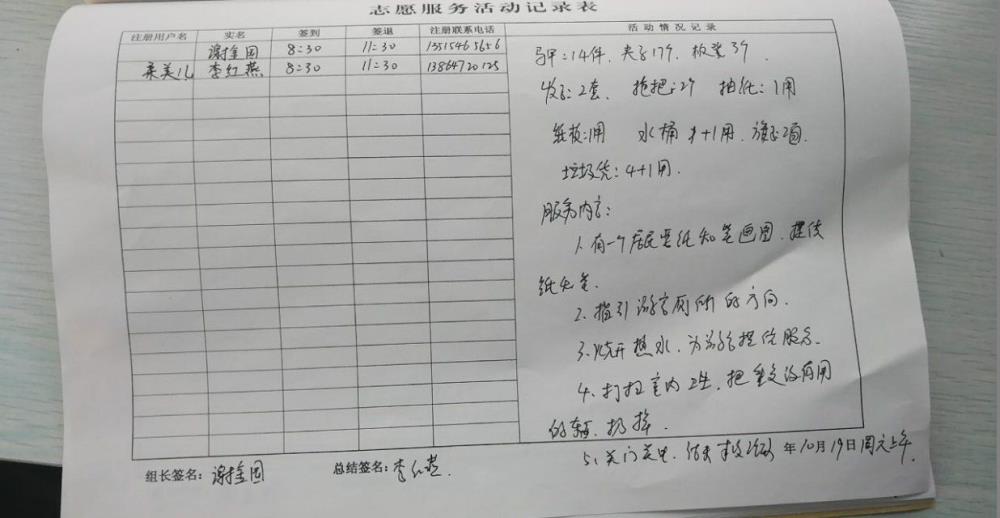 志愿服务活动记录表
注册用户名 实名 签到 签退 注册联系电话 活动情况记录
谢金园 8:30 11:30 13515465656
柔美儿 李红燕 8:30 11:30 13864720125
马甲:14件. 夹子17个. 板凳3个
2套. 拖把:2个 抽纸:1用
纸板:1用 水桶 1用. 旗子2面.
垃圾袋:4+1用.
服务内容:
1.有一个居民要纸和笔画图. 提供
纸和笔.
2.指引游客厕所的方向.
3.烧开热水. 为游客提供服务.
4.打扫室内卫生. 把
的东西. 扔掉.
5.关门关电. 结束 年10月19日周六上午.
组长签名:谢金园 总结签名:李红燕.